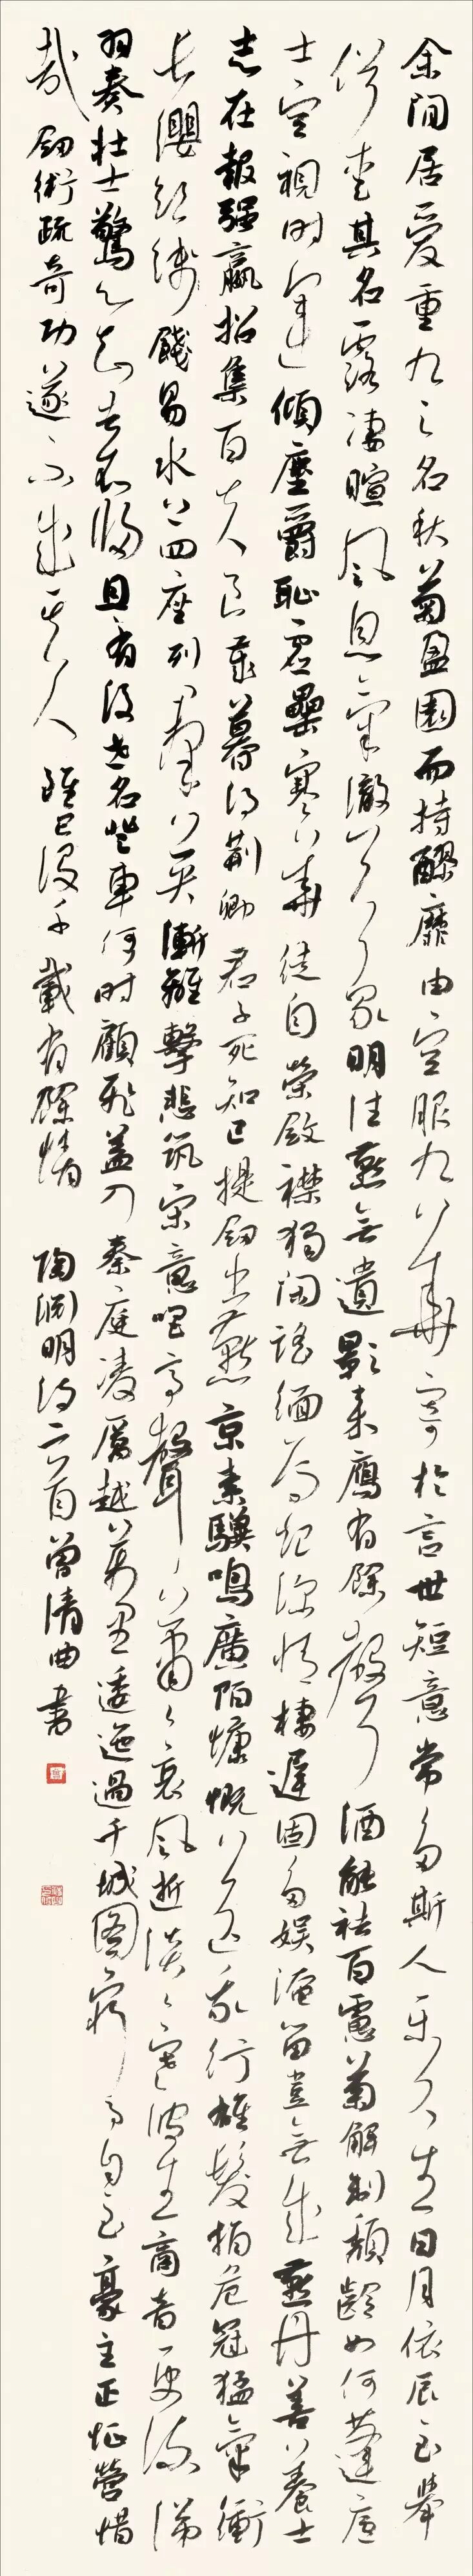 余閒居愛重九之名秋菊盈園而持醪靡由空服九華寄於言世短意常多斯人樂久生日月依辰至舉
俗愛其名露凄暄風息氣澈天象明往燕無遺影來雁有餘聲酒能祛百慮菊解制頹齡如何蓬廬
士空視時運傾塵爵恥虛罍寒華徒自榮斂襟獨閒謠緬焉起深情棲遲固多娛淹留豈無成燕丹善養士
志在報強嬴招集百夫良歲暮得荊卿君子死知己提劍出燕京素驥鳴廣陌慷慨送我行雄髮指危冠猛氣衝
長纓飲餞易水四座列羣英漸離擊悲筑宋意唱高聲蕭々哀風逝淡々寒波生商音更流涕
羽奏壯士驚心知去不歸且有後世名登車何時顧飛蓋入秦庭凌厲越萬里逶迤過千城圖窮事自至豪主正怔營惜
哉劍術疏奇功遂不成其人雖已沒千載有餘情 陶淵明詩二首曾清曲書